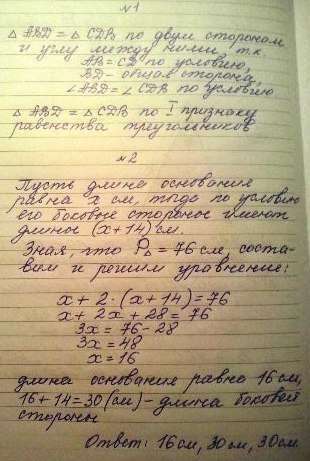 №1
△ ABD = △ CDB по двум сторонам
и углу между ними, т.к
AB = CD по условию,
BD - общая сторона,
∠ABD = ∠CDB по условию
△ ABD = △ CDB по I признаку
равенства треугольников
№2
Пусть длина основания
равна x см, тогда по условию
его боковые стороны имеют
длины (x+14) см.
Зная, что P△ = 76 см, соста-
вим и решим уравнение:
x + 2·(x+14) = 76
x + 2x + 28 = 76
3x = 76 - 28
3x = 48
x = 16
длина основания равна 16 см,
16 + 14 = 30 (см) - длина боковой
стороны
Ответ: 16 см, 30 см, 30 см.